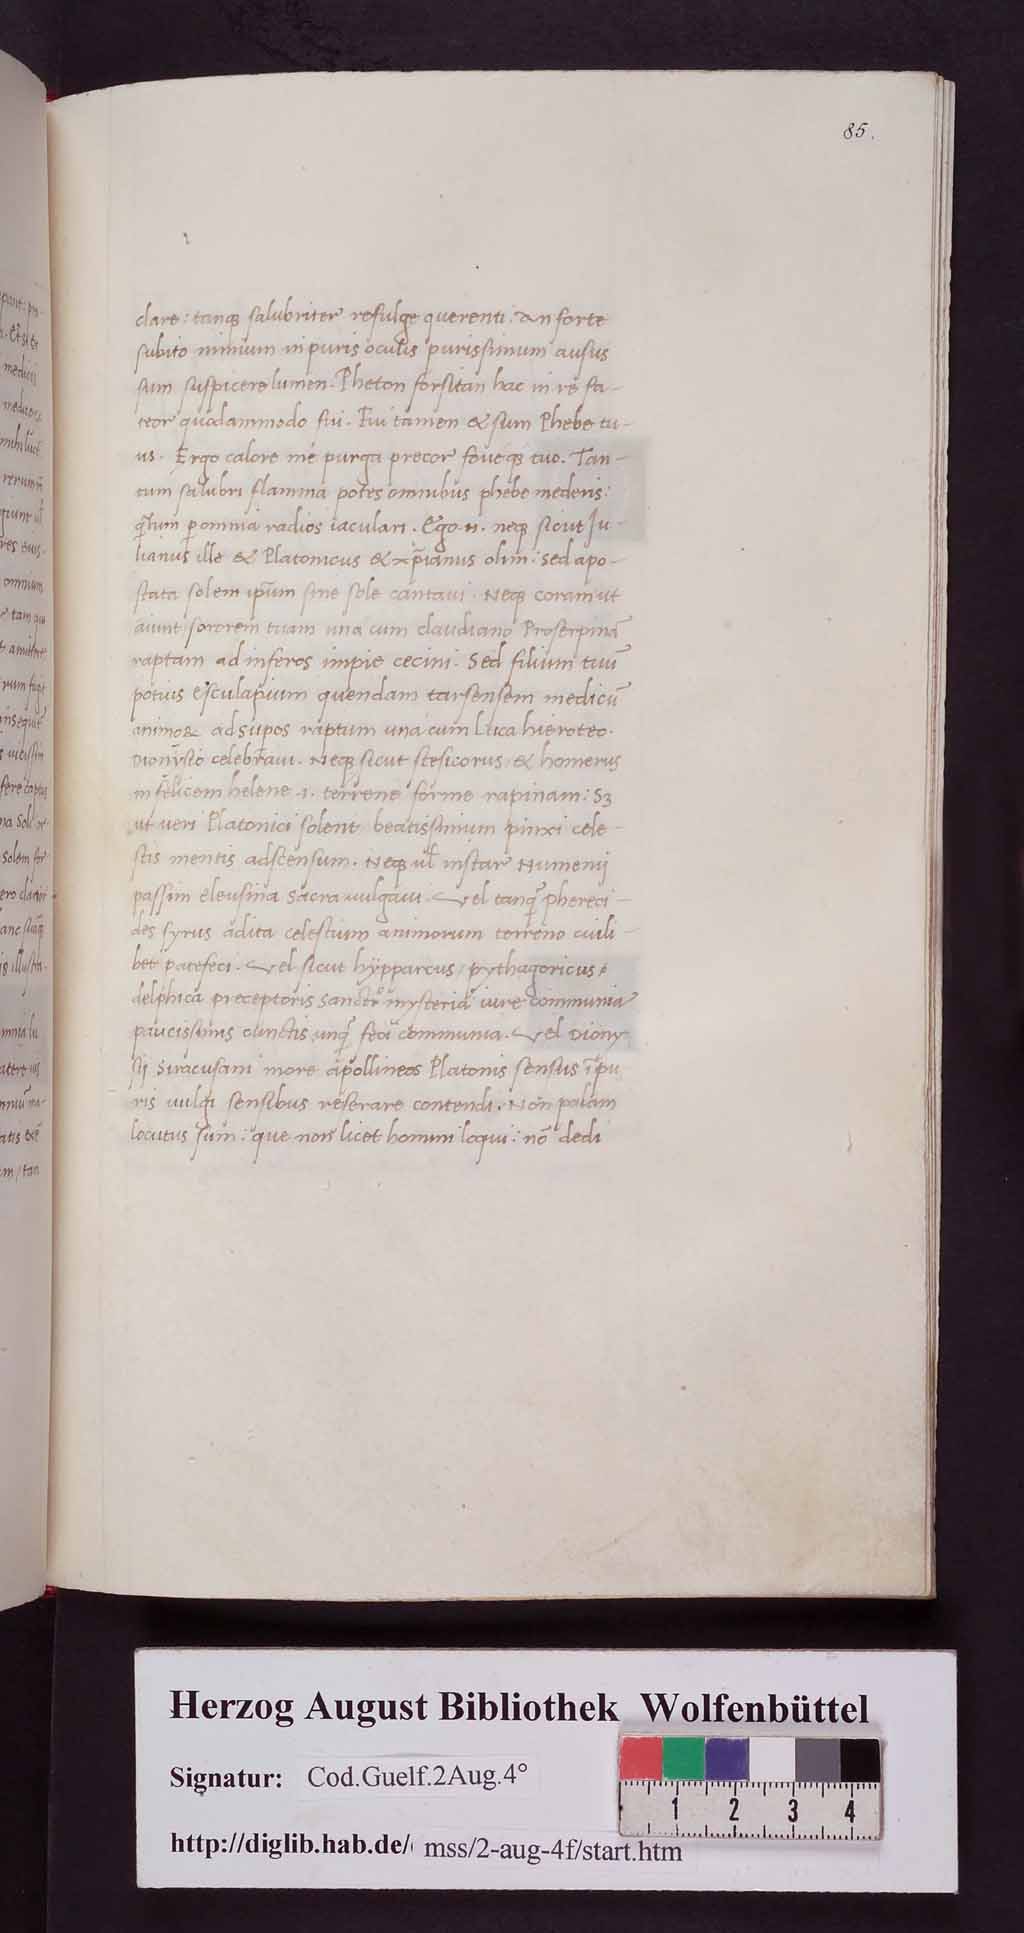 85.
clare: tanq; salubriter refulge querenti. An forte
subito nimium inpuris oculis purissimum ausus
sum suspicere lumen. Pheton forsitan hac in re fa-
teor quodammodo fui. Fui tamen & sum Phebe tu-
us. Ergo calore me purga precor foueq; tuo. Tan-
tum salubri flamma potes omnibus phebe mederis:
q̃tum p omnia radios iaculari. Ego .n. neq; sicut Ju-
lianus ille & Platonicus & xp̃ianus olim: sed apo-
stata solem ip̃um sine sole cantaui. Neq; coram ut
aiunt sororem tuam una cum claudiano Proserpinã
raptam ad inferos impie cecini. Sed filium tuũ
potius esculapium quendam tarsensem medicũ
animoR ad supos raptum una cum Luca hieroteo.
Dionysio celebraui. Neq; sicut stesicorus & homerus
infelicem helene .i. terrene forme rapinam: Sꝫ
ut ueri Platonici solent beatissimum pinxi cele-
stis mentis adscensum. Neq; ul̃ instar Numenij
passim eleusina sacra uulgaui. Vel tanq̃ phereci-
des syrus adita celestium animorum terreno cuili-
bet patefeci. Vel sicut hypparcus / pythagoricus /
delphica preceptoris sancti mysteria iure communia
paucissimis cunctis unq̃ feci communia. Vel Diony
sij Siracusani more apollineos Platonis sensus ĩpu
ris uulgi sensibus reserare contendi. Non palam
locutus sum: que non licet homini loqui: nõ dedi
Herzog August Bibliothek Wolfenbüttel
Signatur: Cod.Guelf.2Aug.4°
1 2 3 4
http://diglib.hab.de/ mss/2-aug-4f/start.htm